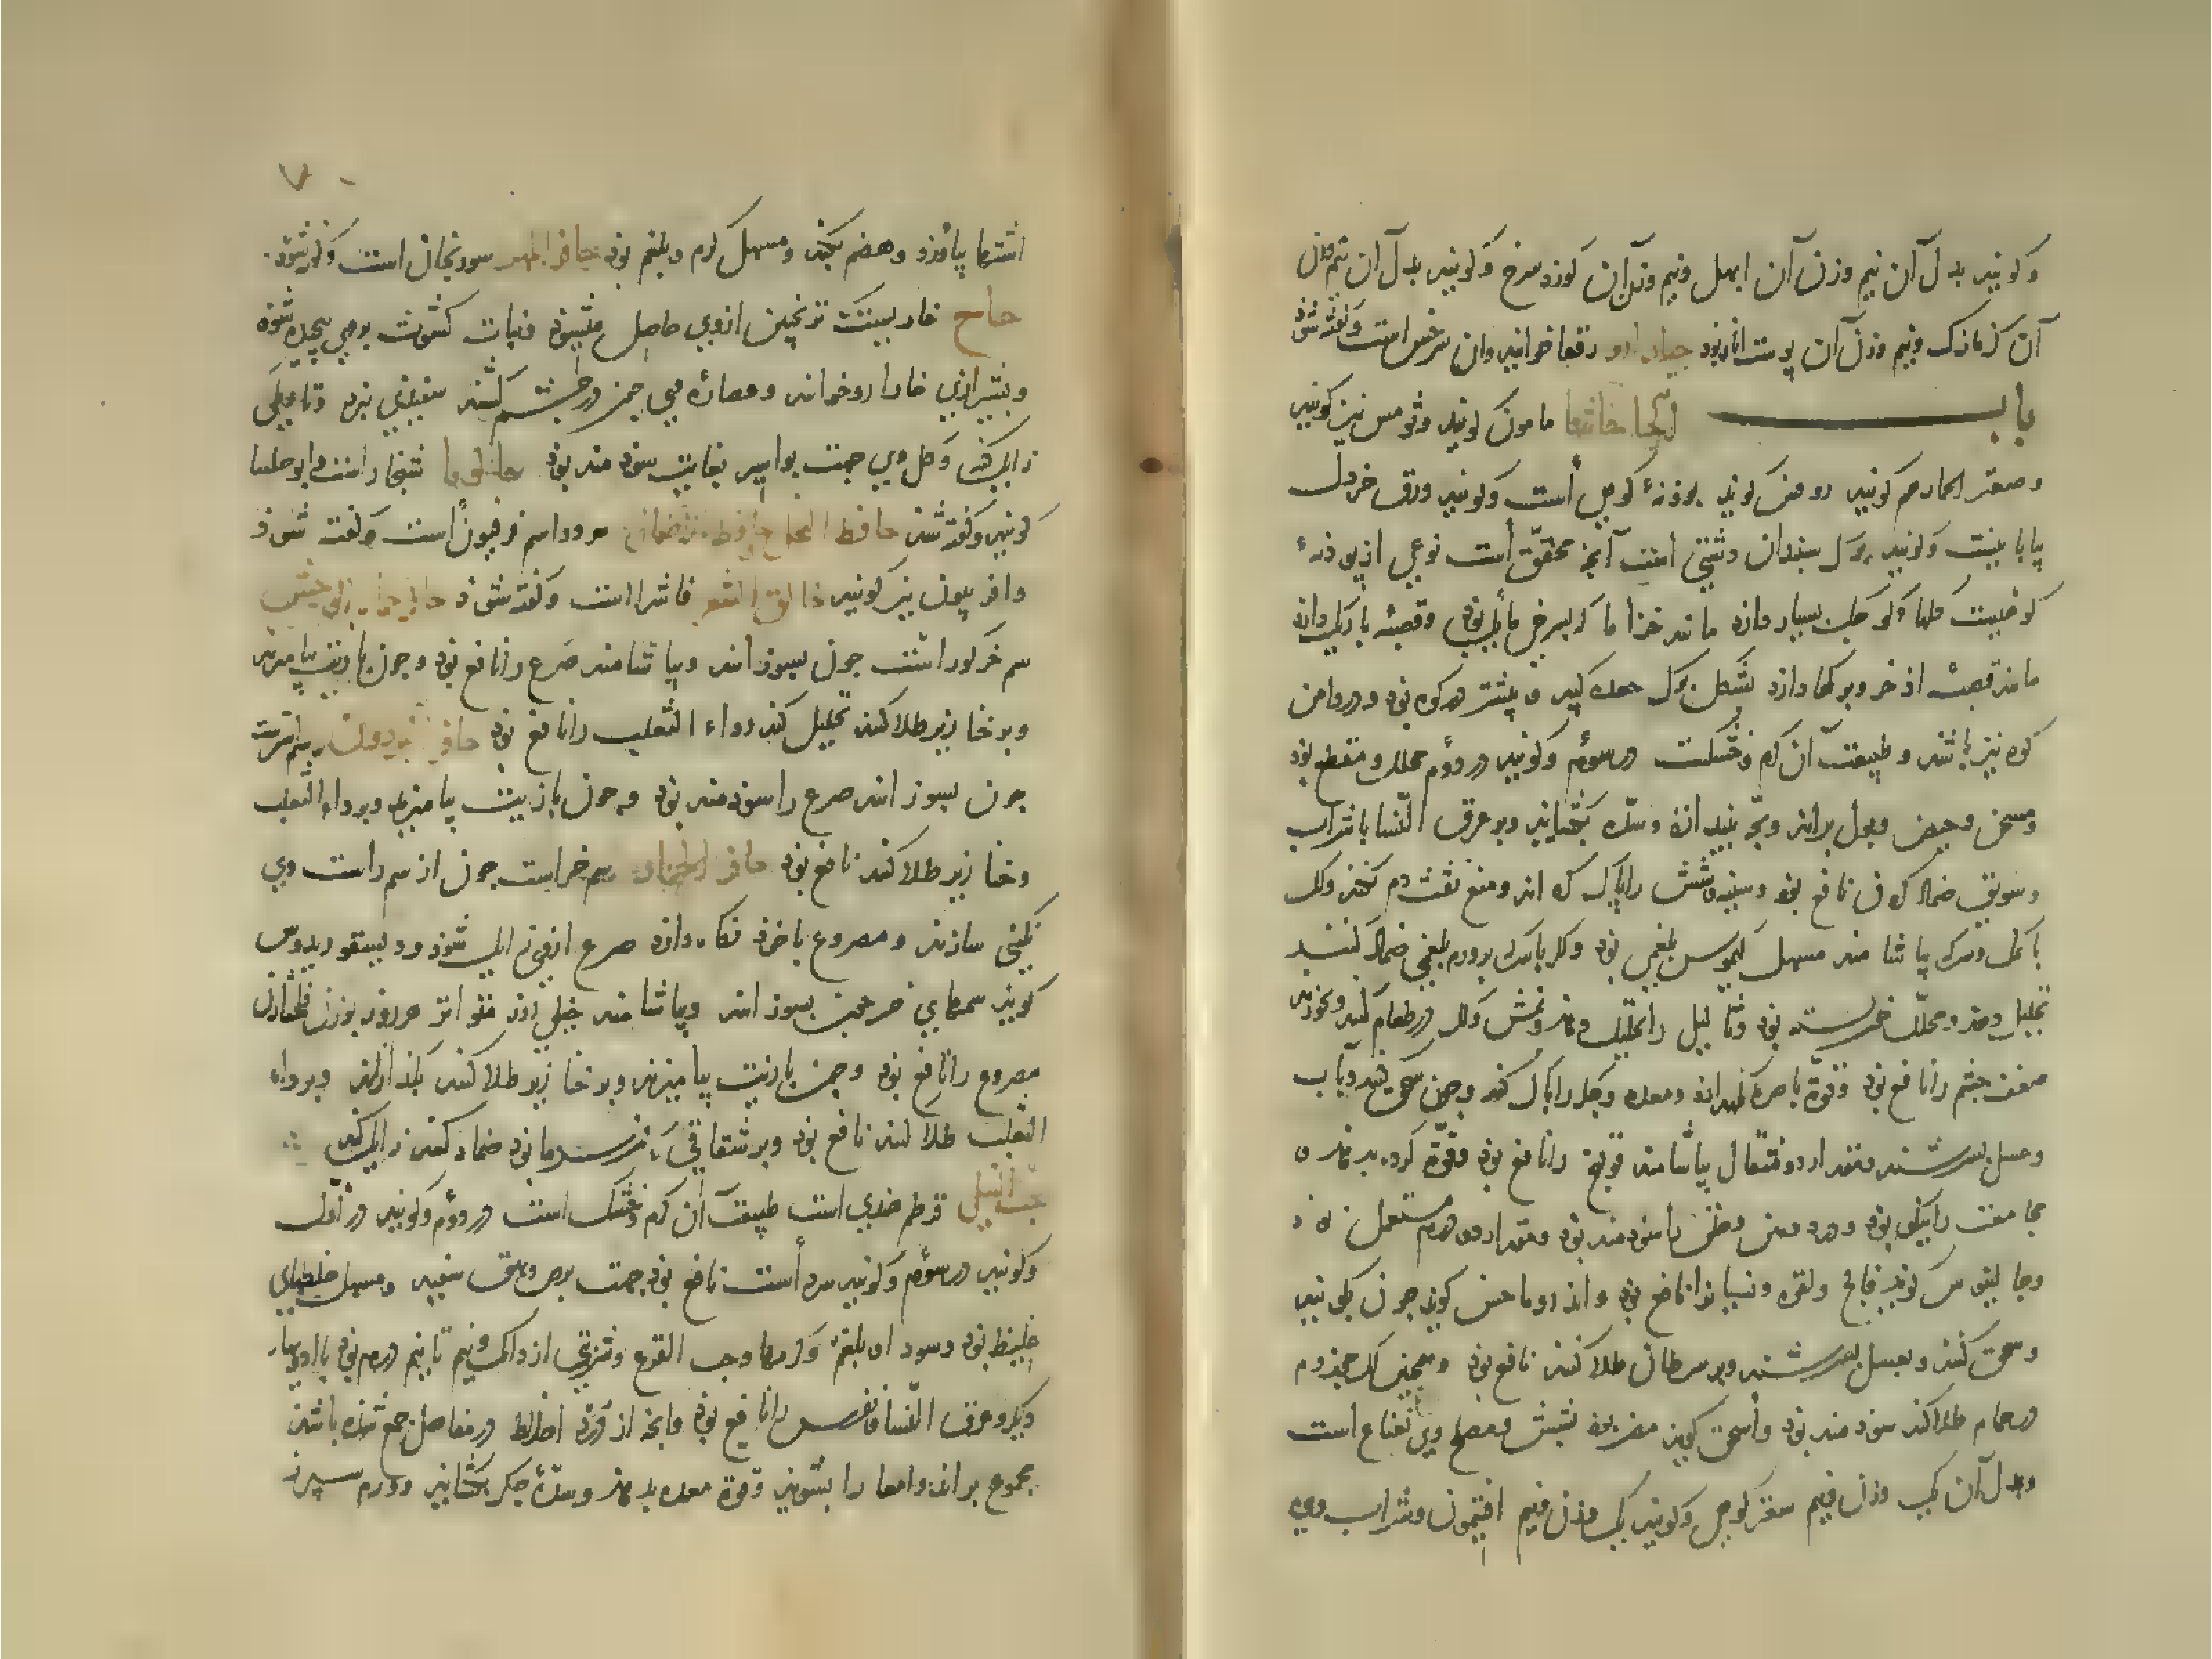 و کویند بدل آن نیم وزن آن ابهل و نیم وزن آن کوزد سرخ و کویند بدل آن نیم وزن
آن کزمازک و نیم وزن آن پوست انار بود جیلدارو رقعا خوانند و آن سرخس است و کفته شود
باب الحا حاشا مامون کویند و ثومس نیز کویند
و صعتر الحمار هم کویند رومی کویند بوذنهٔ کوهی است و کویند ورق خردل
بیابانیست و کویند برک سبندان دشتی است آنچه محققّ است نوعی از پوذنهٔ
کوهیست کلها کوچک بسیار دارد مانند خزاما که بسرخی مایل بود و قصبهٔ باریک دارد
مانند قصبهٔ اذخر و برکها دارد بشکل برک و بیشتر در کوه بود و در دامن
کوه نیز باشد و طبیعت آن کرم و خشکست در سوم و کویند در دوم محلل و مقطع بود
و مسخن و حیض و بول براند و بچه بیندازد و سدّه بکشاید و بر عرق النسا با شراب
و سویق ضماد کردن نافع بود و سینه و شش را پاک کرداند و منع نفث دم بکند و کلک
با نمک و سرکه بیاشامند مسهل کیموس بلغمی بود و کلر با سرکه بر ورم بلغمی ضماد کنند
تحلیل دهد و محلل خون بسته بود و ثالیل را تحلیل دهد و نمش و کلر در طعام کنند و بخورند
ضعف چشم را نافع بود و قوّة باصره نکهدارد و معده و جکر را پاک کند و چون سحق کنند و با آب
و عسل بسرشند و مقدار دو مثقال بیاشامند قولنج را نافع بود و قوّة کرده بدهد و
مجامعت را نیکو بود و درد معده و طحال را سودمند بود و مقدار دو درم مستعمل بود
و جالینوس کوید فالج و لقوه و نسیان را نافع بود و اندروماخس کوید چون بکوبند
و سحق کنند و بعسل بسرشند و بر سرطان طلا کنند نافع بود و همچنین کلک مجذوم
در حمام طلا کند سودمند بود و اسحق کوید مضر بود بشش و مصلح وی نعناع است
و بدل آن یک وزن و نیم سعتر کوهی و کویند یک وزن و نیم افتیمون و شراب وی
۷۰
اشتها بیاورد و هضم بکند و مسهل کرم و بلغم بود حافر المهر سورنجان است و کفته شود
حاج خاریست که ترنجبین از وی حاصل میشود و نبات کشوث بروی پیچیده شود
و بشیرازی خارا روخوانند و عصارهٔ وی چون در چشم کشند سفیدی ببرد و تاریکی
زایل کند و کل وی جهت بواسیر بغایت سودمند بود حالوما شنجار است و ابو حلسا
کویند و کفته شد حافظ النحل و حافظ هر دو اسم فرفیون است و کفته شود
و افربیون نیز کویند خالق الشعر فاشرا است و کفته شود حافر حمار الوحشی
سم خرکور است چون بسوزانند و بیاشامند صَرع را نافع بود و چون با زیت بیامیزند
و بر خنازیر طلا کنند تحلیل کند و داء الثعلب را نافع بود حافر البردون سم استرست
چون بسوزانند صرع را سودمند بود و چون با زیت بیامیزند و بر داء الثعلب
و خنازیر طلا کنند نافع بود حافر الحمار سم خراست چون از سم راست وی
نکینی سازند و مصروع با خود نکاه دارد صرع از وی زایل شود و دیسقوریدوس
کوید سمهای خر چون بسوزانند و بیاشامند چندی روز متواتر هر روز بوزن فلنجارن
مصروع را نافع بود و چون با زیت بیامیزند و بر خنازیر طلا کنند بکدازاند و بر داء
الثعلب طلا کنند نافع بود و بر شقاقی که از سرما بود ضماد کنند زایل کند
حب النیل قرطم هندی است طبیعت آن کرم و خشک است در دوم و کویند در اول
و کویند در سوم و کویند سرد است نافع بود جهت برص و بهق سفید و مسهل خلطهای
غلیظ بود و سودا و بلغم و کرمها و حب القرع و شربتی از دانک و نیم تا نیم درم بود با ادویهای
دیکر و عرق النسا و نقرس را نافع بود و آنچه از کرد اخلاط در مفاصل جمع شده باشد
مجموع براند و امعا را بشوید و قوة معده بدهد و سدّهٔ جکر بکشاید و ورم سپرز